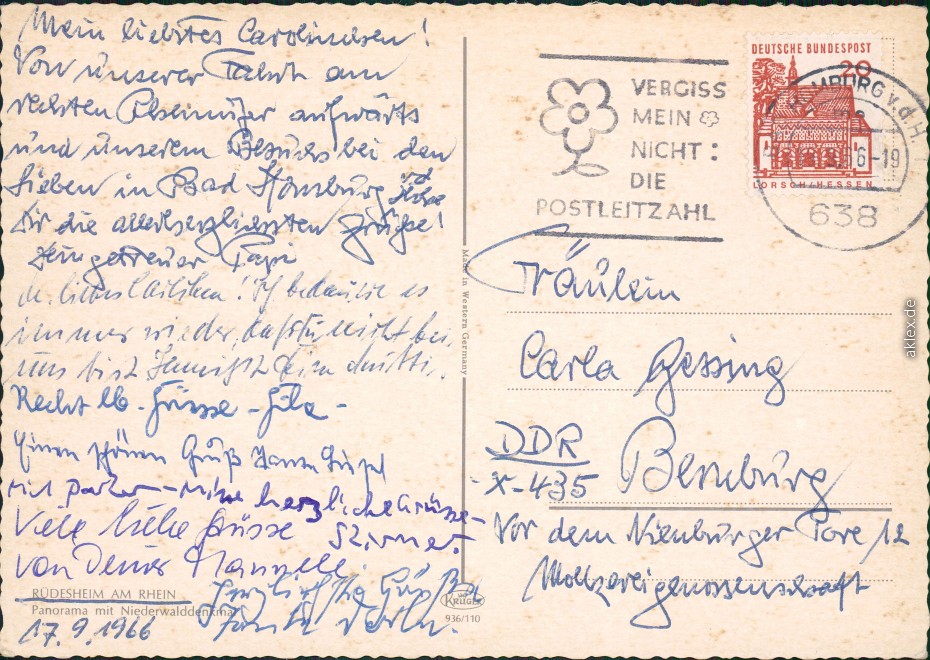 Mein liebstes Carolinchen!
Von unserer Fahrt am
rechten Rheinufer aufwärts
und unserem Besuch bei den
Lieben in Bad Homburg
Dir die allerherzlichsten Grüße!
Dein getreuer Papi
Ich bedauere es
immer wieder, daß Du nicht bei
uns bist
Recht lb. Grüsse
Einen schönen Gruß
herzliche Grüsse
Viele liebe Grüsse
von Deiner
Herzlichste Grüße
RÜDESHEIM AM RHEIN
Panorama mit Niederwalddenkmal
17.9.1966
Made in Western Germany
KRÜGER
936/110
VERGISS
MEIN
NICHT:
DIE
POSTLEITZAHL
DEUTSCHE BUNDESPOST
20
LORSCH/HESSEN
HOMBURG v.d.H.
638
Fräulein
Carla Gessing
DDR
X-435 Bernburg
Vor dem Nienburger Tore 12
Molkereigenossenschaft
aklex.de